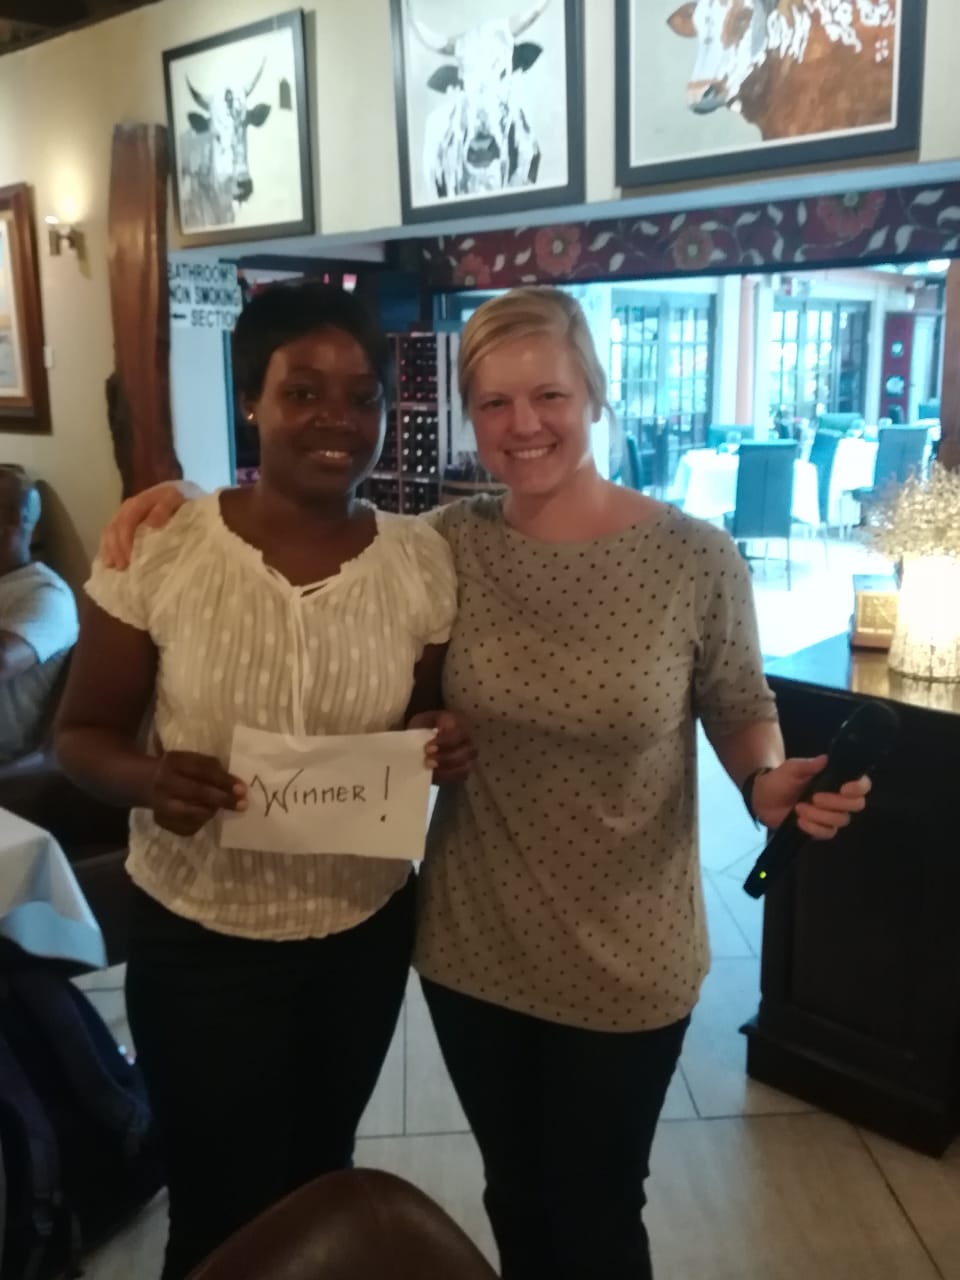 BATHROOMS
NON SMOKING
← SECTION
Winner!